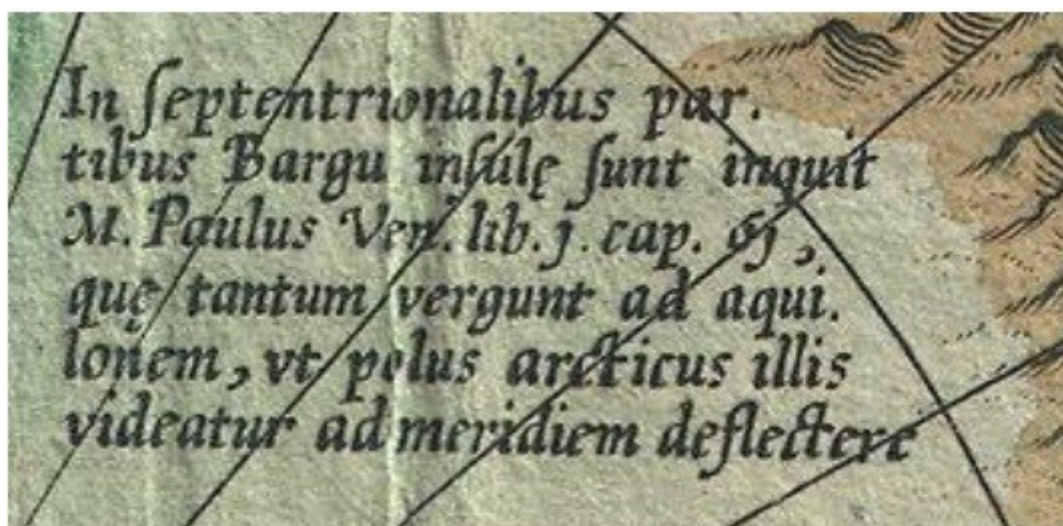 In ſeptentrionalibus par.
tibus Bargu inſulę ſunt inquit
M. Paulus Ven. lib. j. cap. 61,
quę tantum vergunt ad aqui.
lonem, vt polus arcticus illis
videatur ad meridiem deflectere